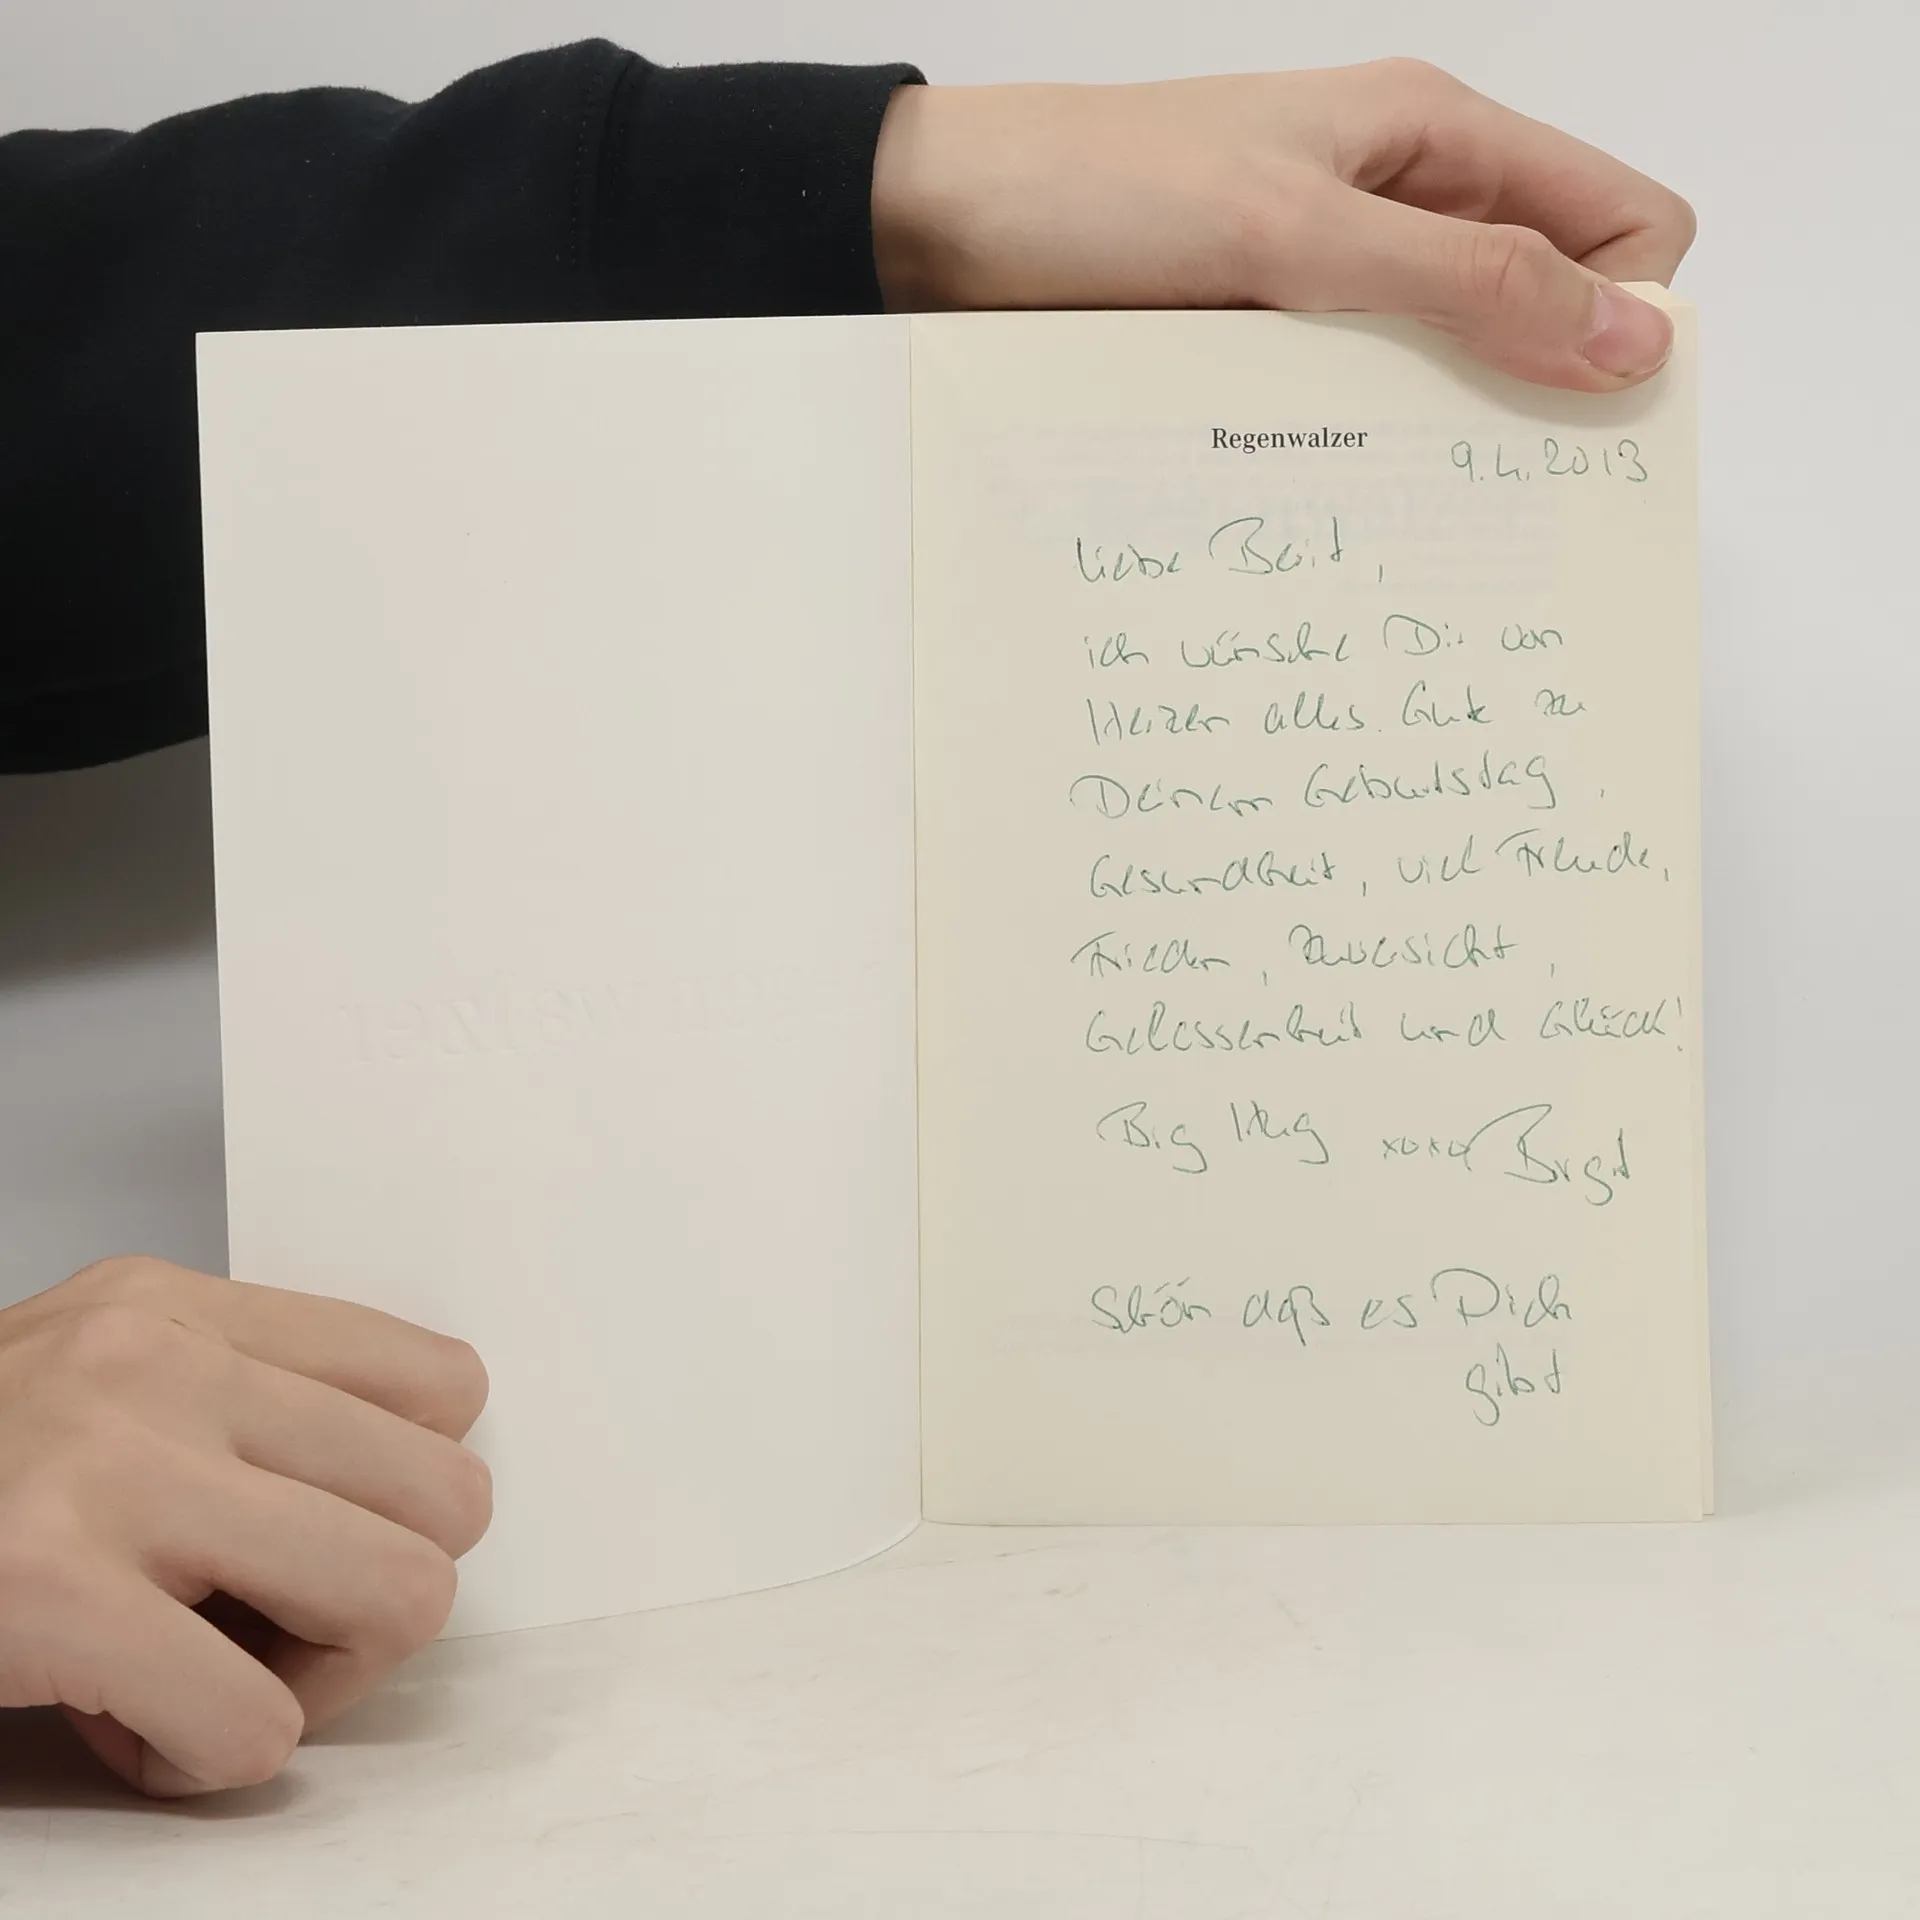 Regenwalzer
9.4.2013
liebe Beit,
ich wünsche Dir von
Herzen alles Gute zu
Deinem Geburtstag,
Gesundheit, viel Freude,
Frieden, Zuversicht,
Gelassenheit und Glück!
Big Hug xoxo Birgit
Schön daß es Dich
gibt